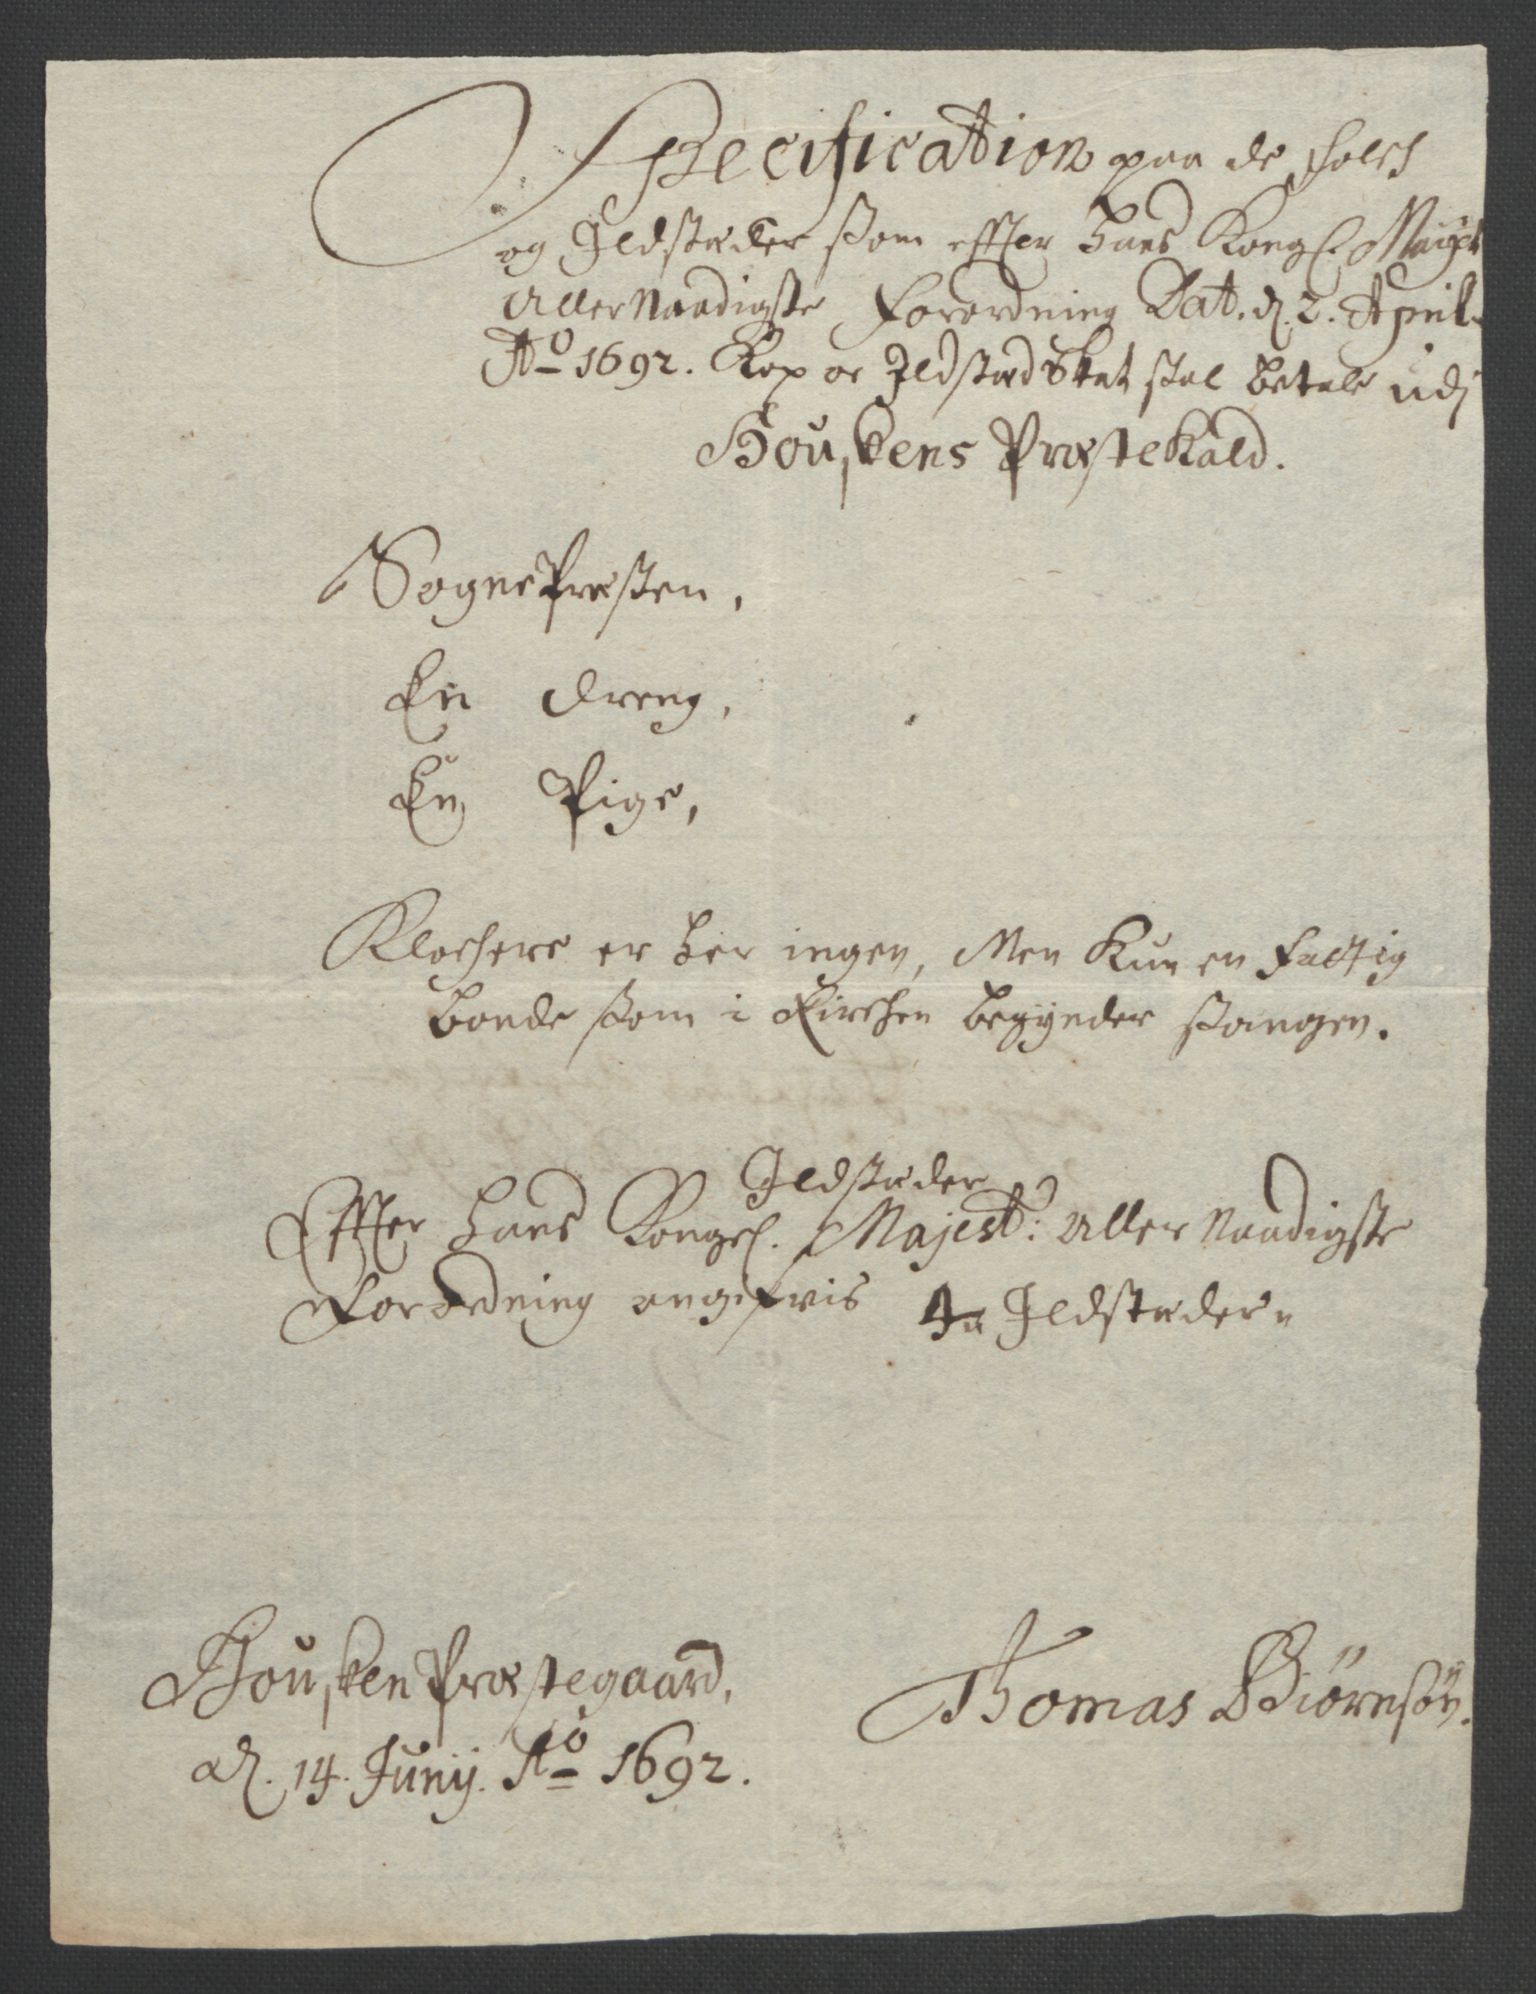 Specification paa de Folch
og Ildstæder som effter Hans Kongl. Mayts
AllerNaadigste Forordning Dat. d. 2. April.
Ao 1692. Kop oc Ildstæd Skat skal betale udj
Bouskens Præstekald.
SognePræsten,
En dreng,
En Pige,
Klochere er her ingen, Men Kun en Fattig
bonde som i Kirchen begÿnder Sangen.
Ildstæder
Effter Hans Kongel. Majest: AllerNaadigste
Forordning angifvis 4re Ildstæder
Bousken Præstegaard,
d. 14. Junij. Ao 1692.
Thomas Biörnsön.